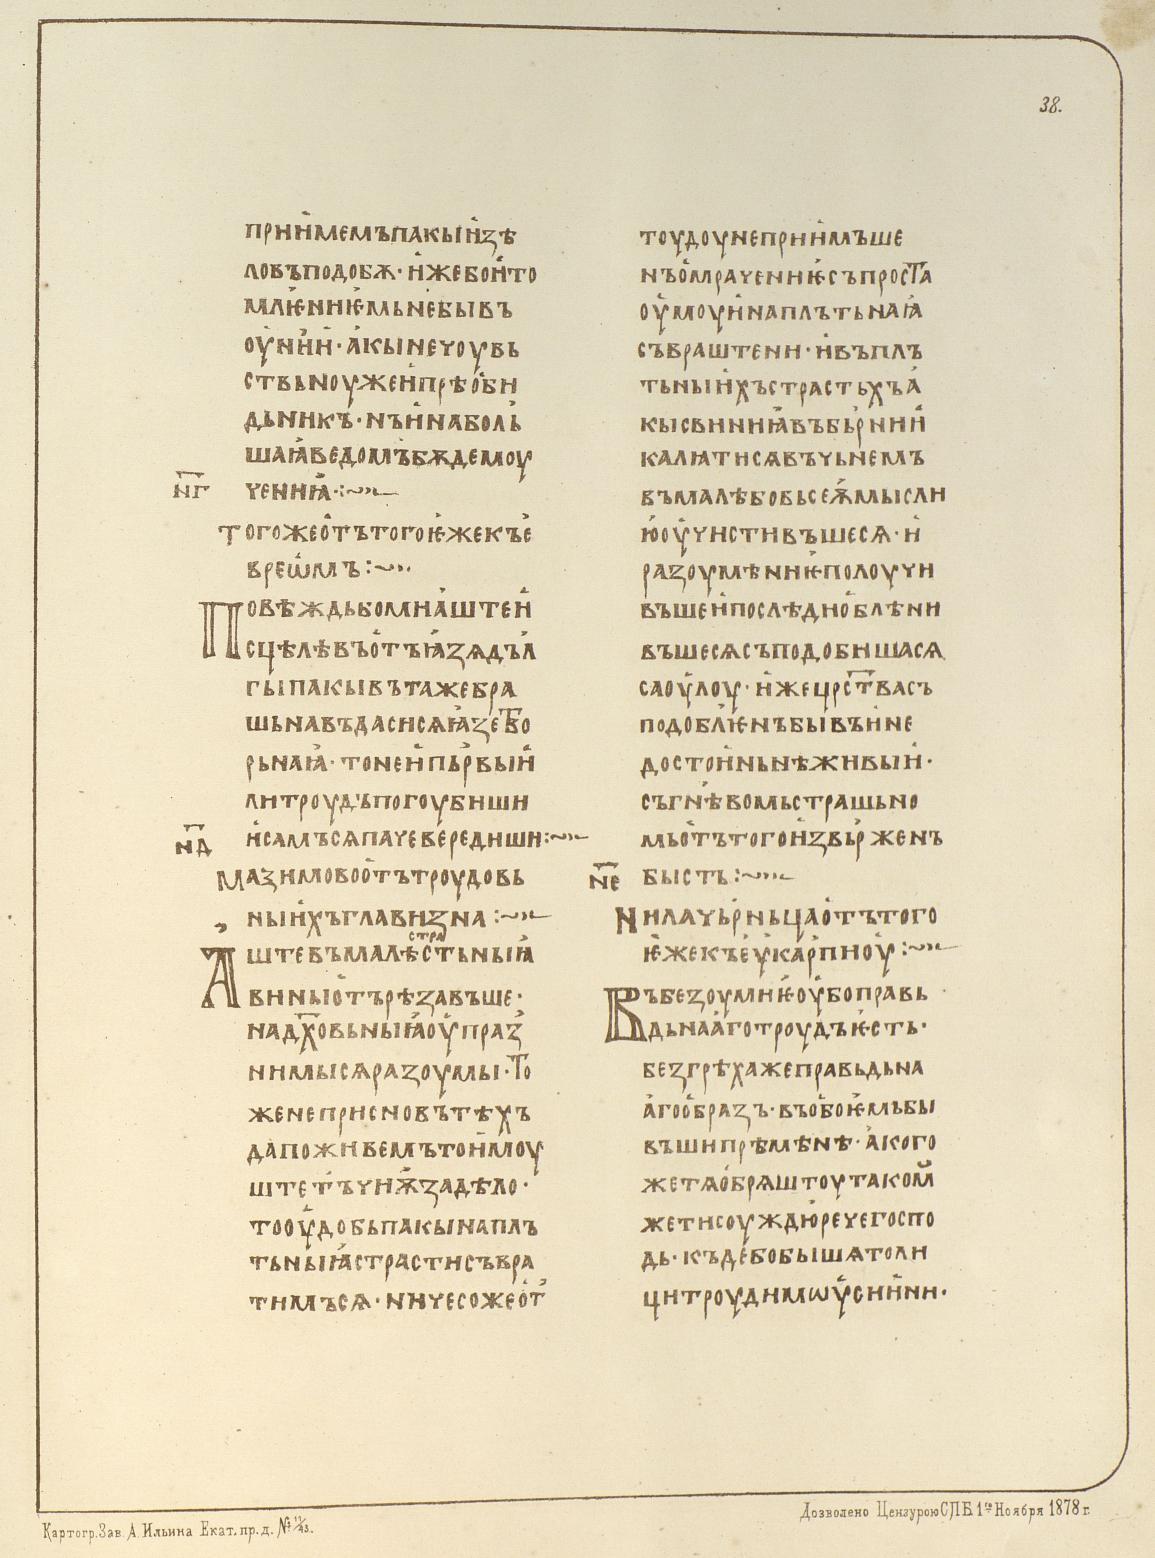 38.
приимемъпакыизѣ
ловъподобѫ·ижебоито
млѥниѥмьнебывъ
оунии·акынечоувь
ствьноужеипрѣоби
дьникъ·нъинаболь
шаꙗведомъбѫдемоу
н҃г чениꙗ·:~
тогожеотътогоѥжекъе
вреѡмъ:~
Повѣждьбомнаштеи
сцѣлѣвъотъꙗзѧдъл
гыпакывътажебра
шьнавъдасисѧꙗзетво
рьнаꙗ·тонеипьрвыи
литроудъпогоубиши
н҃д исамъсѧпачевередиши:~
Мазимовоотътроудовь
ныихъглавизна:~
Аштевъмалѣстрастьныꙗ
виныотърѣзавъше·
надх҃овьныꙗоупраз
нимысѧразоумы·то
женеприсновътѣхъ
дапоживемътоимоу
штетъчиѭзадѣло·
тооудобьпакынапл҄ъ
тьныꙗстрастисъвра
тимъсѧ·ничесожеот
тоудоунеприимъше
нъомрачениѥсъпроста
оумоуинаплътьнаꙗ
съвраштени·ивъплъ
тьныихъстрастьхъа
кысвиниꙗвъбьрнии
калꙗтисѧвъчьнемъ
въмалѣбовьсеѭмысли
юоучистивъшесѧ·и
разоумѣниѥполоучи
въшеипослѣднобл҄ѣни
въшесѧсъподобишасѧ
саоулоу·ижецр҃ствасъ
подобл҄ѥнъбывъине
достоиньнѣживыи·
съгнѣвомьстрашьно
мьотътогоизвьрженъ
н҃е бысть:~
Нилачьрньцаотътого
ѥжекъеукарпиоу:~
Въбезоумиѥоубоправь
дьнааготроудъѥсть·
безгрѣхажеправьдьна
агообразъ·въобоѥмьбы
въшипрѣмѣнѣ·акого
жетѧобрѧштоутаком
жетисоуждюречегоспо
дь·къдебобышѧтоли
цитроудимѡусиини·
Картогр.Зав.А.Ильина Екат.пр.д.№ 11/43.
Дозволено Цензурою СПБ 1го Ноября 1878 г.